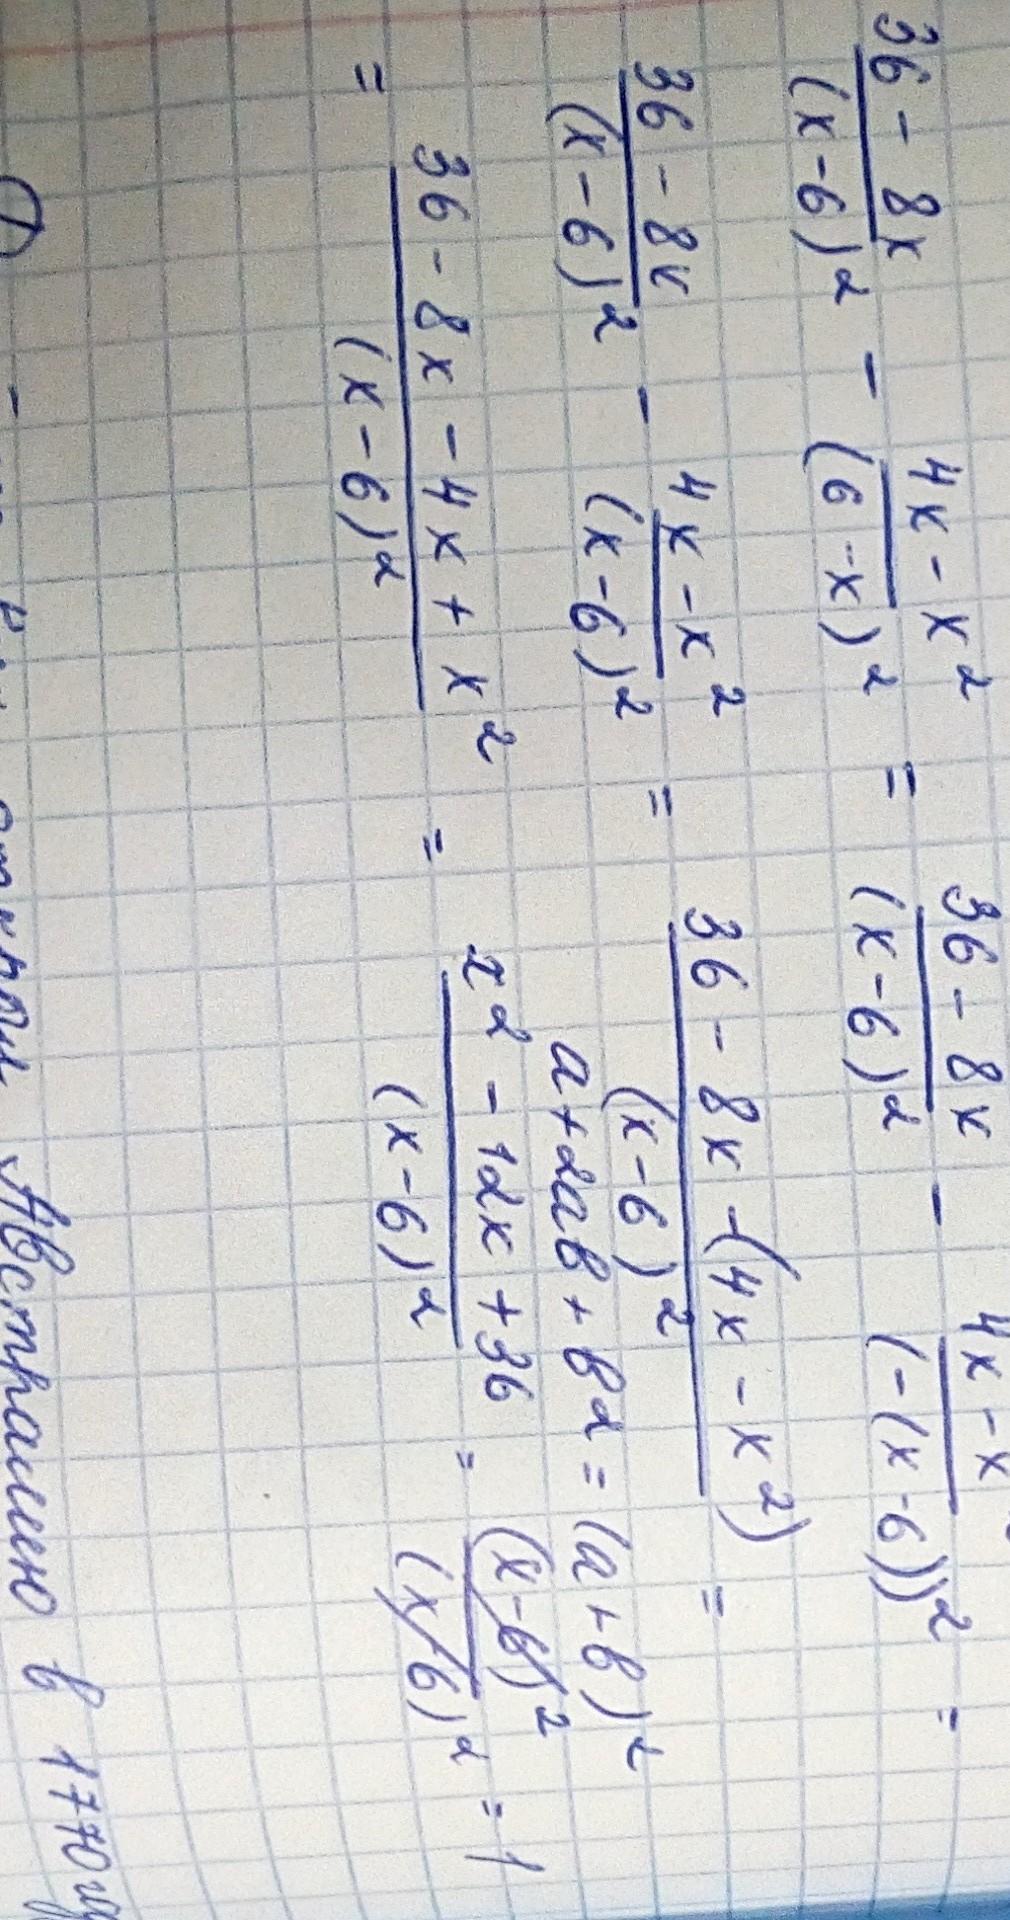 (36 - 8x)/(x - 6)² - (4x - x²)/(6 - x)² = (36 - 8x)/(x - 6)² - (4x - x)/(-(x - 6))² =
(36 - 8x)/(x - 6)² - (4x - x²)/(x - 6)² = (36 - 8x - (4x - x²))/(x - 6)² =
a + 2ab + b2 = (a + b)²
= (36 - 8x - 4x + x²)/(x - 6)² = (x2 - 12x + 36)/(x - 6)² = (x - 6)²/(x - 6)² = 1
Австралию в 1770 г